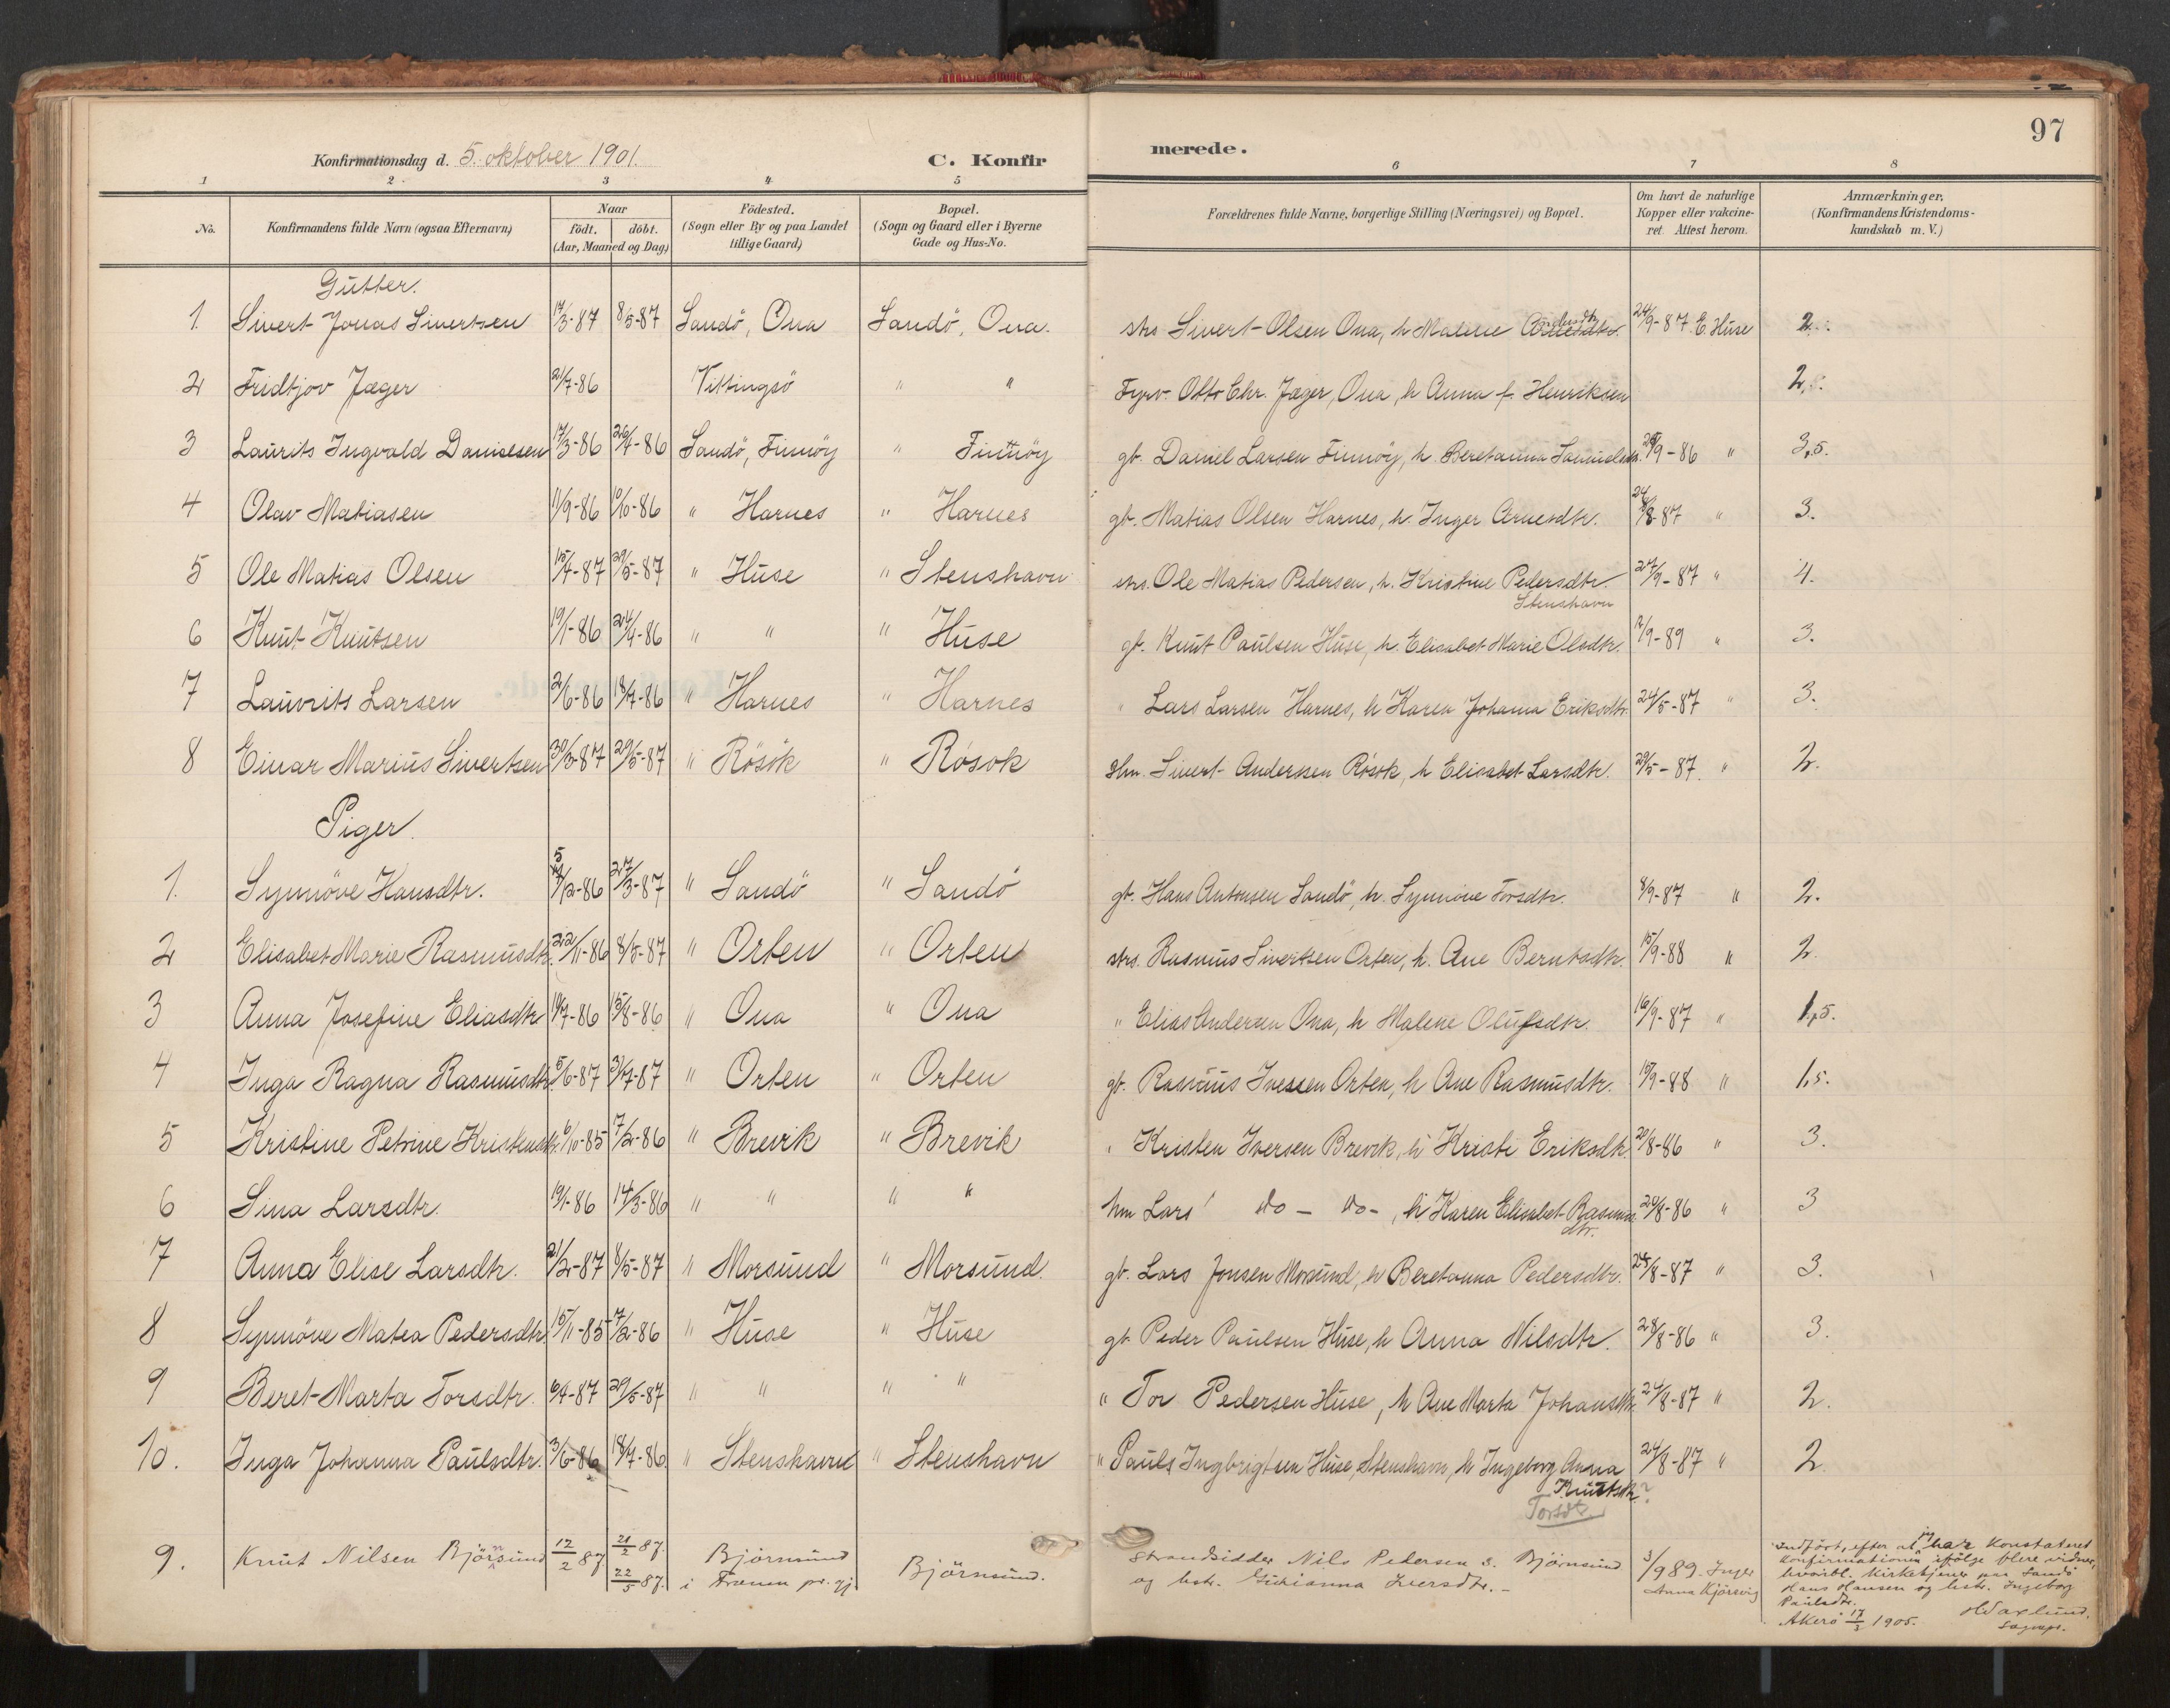 97
Konfirmationsdag d. 5. oktober 1901.
C. Konfirmerede.
1 2 3 4 5 6 7 8
No.
Konfirmandens fulde Navn (ogsaa Efternavn)
Naar
födt. döbt.
(Aar, Maaned og Dag)
Födested.
(Sogn eller By og paa Landet
tillige Gaard)
Bopæl.
(Sogn og Gaard eller i Byerne
Gade og Hus-No.
Forældrenes fulde Navne, borgerlige Stilling (Næringsvei) og Bopæl.
Om havt de naturlige
Kopper eller vakcine-
ret. Attest herom.
Anmærkninger.
(Konfirmandens Kristendoms-
kundskab m. V.)
Gutter.
1. Sivert Jonas Sivertsen 17/3-87 8/5-87 Sandö, Ona Sandö, Ona. strs Sivert Olsen Ona, h Malene 24/9-87 E. Huse 2.
2 Fridtjov Jæger 21/7-86 Vittingsö " " Fyrv. Otto Chr. Jæger, Ona, h Anna f. Henriksen 2.
3 Laurits Ingvald Danielsen 17/3-86 26/4-86 Sandö, Finnöy " Finnöy gb. Daniel Larsen Finnöy, h. Beretanna Samuelsdtr. /9-86 " 3,5.
4 Olav Matiasen 11/9-86 10/10-86 " Harnes " Harnes gb. Matias Olsen Harnes, h. Inger Arnesdtr. 24/8-87 " 3.
5 Ole Matias Olsen 15/4-87 29/5-87 " Huse " Stenshavn strs. Ole Matias Pedersen, h. Kristine Pedersdtr. 24/9-87 " 4.
Stenshavn
6 Knut Knutsen 19/1-86 24/4-86 " " " Huse gb. Knut Paulsen Huse, h. Elisabet Marie Olsdtr. /9-89 " 3.
7 Laurits Larsen 2/6-86 18/7-86 " Harnes " Harnes " Lars Larsen Harnes, h Karen Johanna Eriksdtr. 24/5-87 " 3.
8 Einar Marius Sivertsen 30/3-87 29/5-87 " Rösök " Rösok Sivert Andersen Rösok, h Elisabet Larsdtr. 29/5-87. " 2.
Piger.
1. Synnöve Hansdtr. 5/12-86 27/3-87 " Sandö " Sandö gb. Hans Antonsen Sandö, h. Synnöve Torsdtr. 8/9-87 " 2.
2 Elisabet Marie Rasmusdtr. 22/11-86 8/5-87 " Orten " Orten strs. Rasmus Sivertsen Orten, h. Ane Berntsdtr. 15/9-88 " 2.
3 Anna Josefine Eliasdtr 10/7-86 15/8-86 " Ona " Ona " Elias Andersen Ona, h Malene Olufsdtr. 16/9-87 " 1,5.
4 Inga Ragna Rasmusdtr. 5/6-87 31/7-87 " Orten " Orten gb. Rasmus Iversen Orten, h Ane Rasmusdtr. 15/9-88 " 1,5.
5 Kristine Petrine Kristensdtr. 6/10-85 7/2-86 " Brevik " Brevik " Kristen Iversen Brevik, h Kristi Eriksdtr. 20/8-86 " 3.
6 Sina Larsdtr. 19/1-86 14/3-86 " " " " hm Lars do - do -, h Karen Elisabet Rasmus 20/8-86 " 3
dtr.
7 Anna Elise Larsdtr. 21/2-87 8/5-87 " Morsund " Morsund. gb. Lars Jonsen Morsund, h Beretanna Pedersdtr. /8-87 " 3.
8 Synnöve Matea Pedersdtr. 15/11-85 7/2-86 " Huse " Huse gb. Peder Paulsen Huse, h Anna Nilsdtr. 28/8-86 " 3.
9 Beret Marta Torsdtr. 6/4-87 29/5-87 " " " " " Tor Pedersen Huse, h Ane Marta Johansdtr. 24/8-87 " 2.
10. Inga Johanna Paulsdtr. 3/6-86 18/7-86. " Stenshavn " Stenshavn " Pauls Ingbrigtsen Huse, Stenshavn, h Ingeborg Anna 24/8-87 " 2
Knutsdtr?
Torsdtr.
9. Knut Nilsen Björnsund 12/2 87 21/2 87. 22/5 87. Björnsund i Frænen pr. gj Björnsund.
Strandsidder Nils Pedersen s. Björnsund
og hstr. Gurianna Iversdtr. -
3/9 89. Inger
Anna Kjörsvig
Indført, efter at jeg har konstateret
konfirmationen ifölge flere vidner,
hvoribl. kirketjener paa Sandö
Hans Hansen og hstr. Ingeborg
Paulsdtr.
Akerö 17/3 1905.